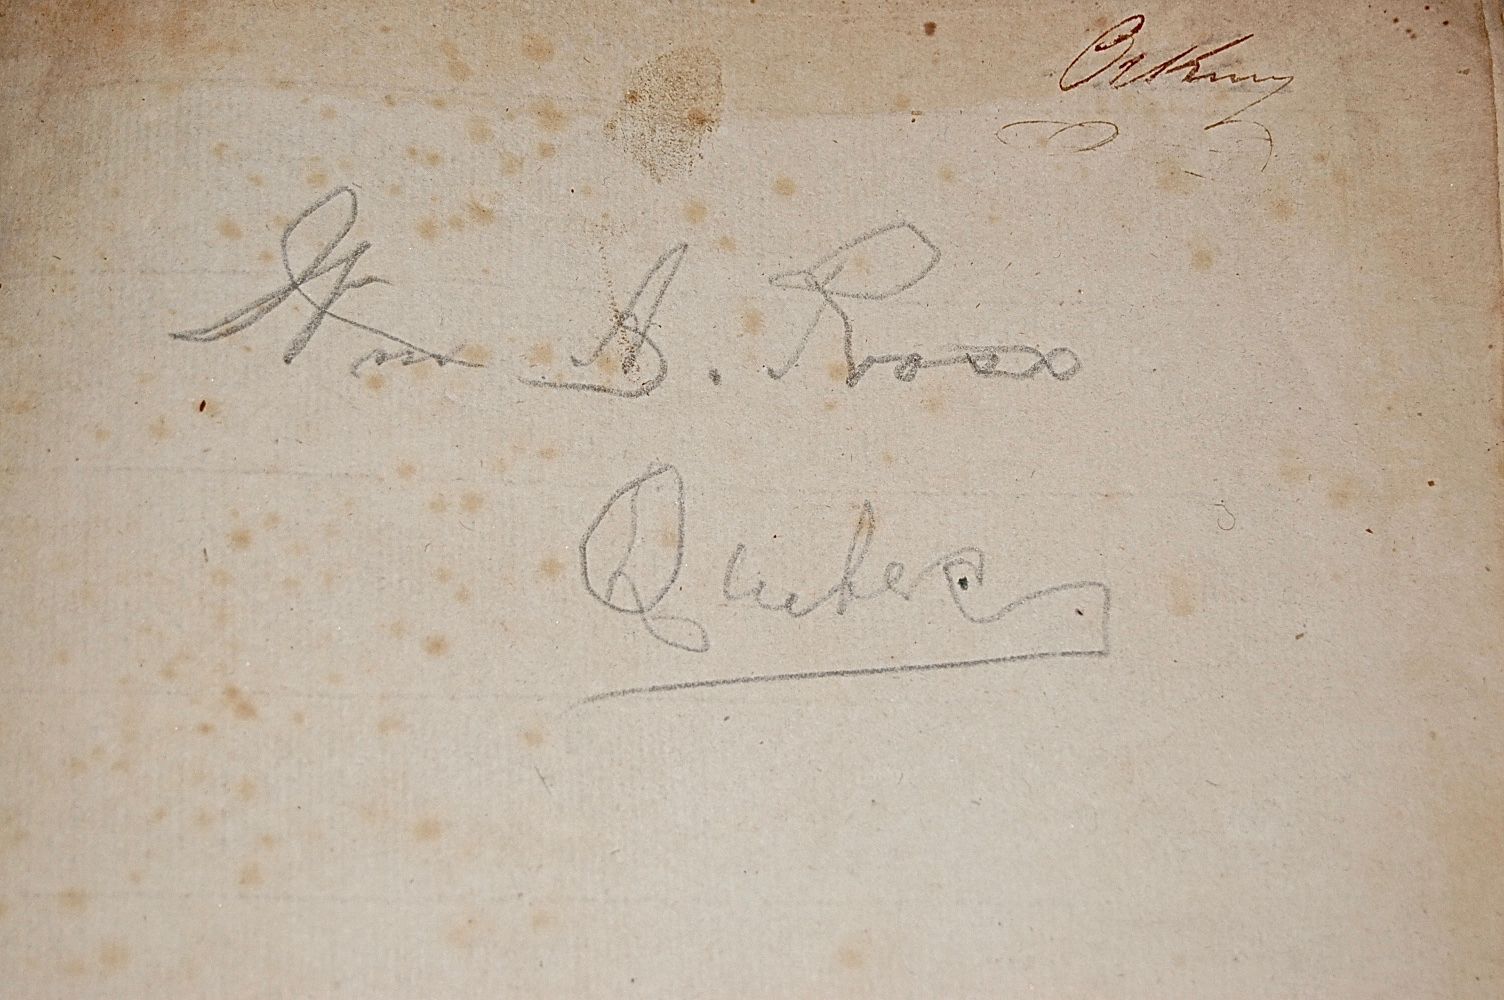 Orkney
Wm A. Ross
Quebec